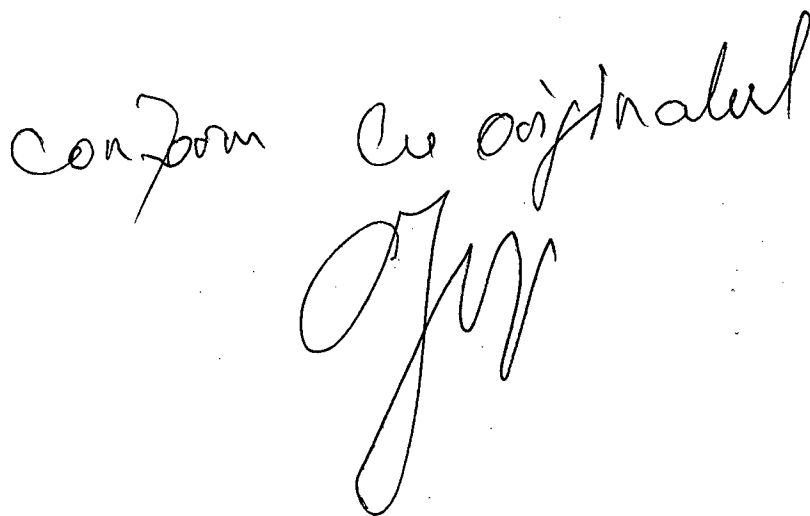 conform cu originalul